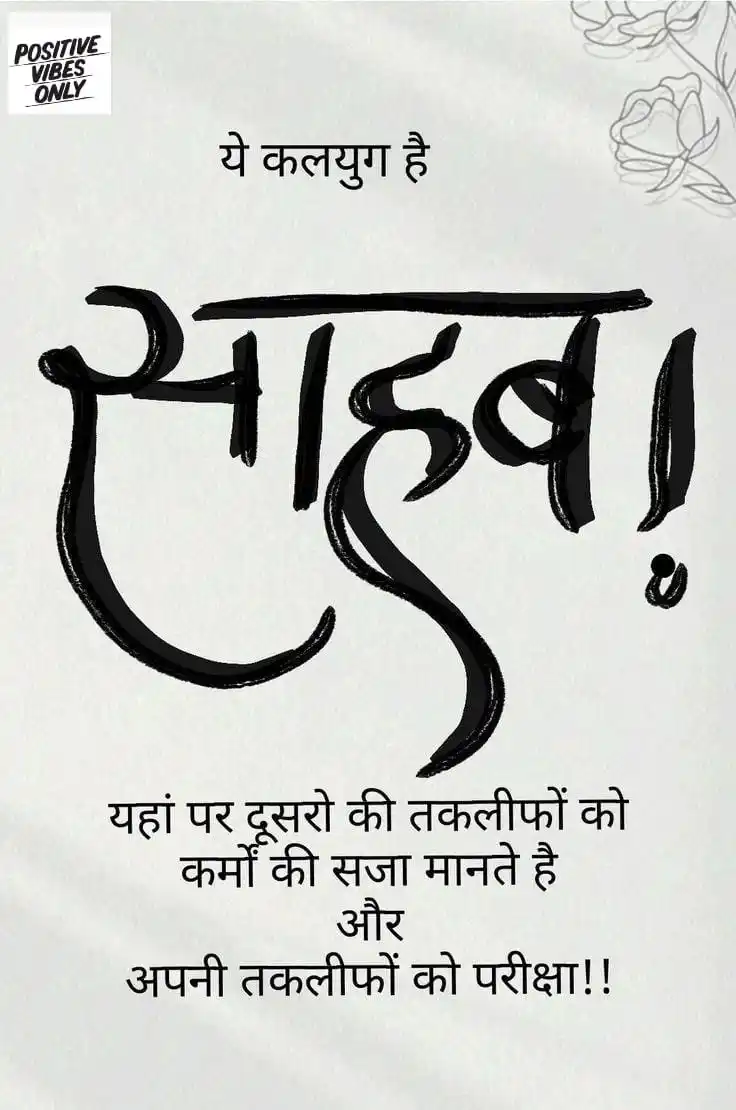 POSITIVE
VIBES
ONLY
ये कलयुग है
साहब!
यहां पर दूसरो की तकलीफों को
कर्मों की सजा मानते है
और
अपनी तकलीफों को परीक्षा!!